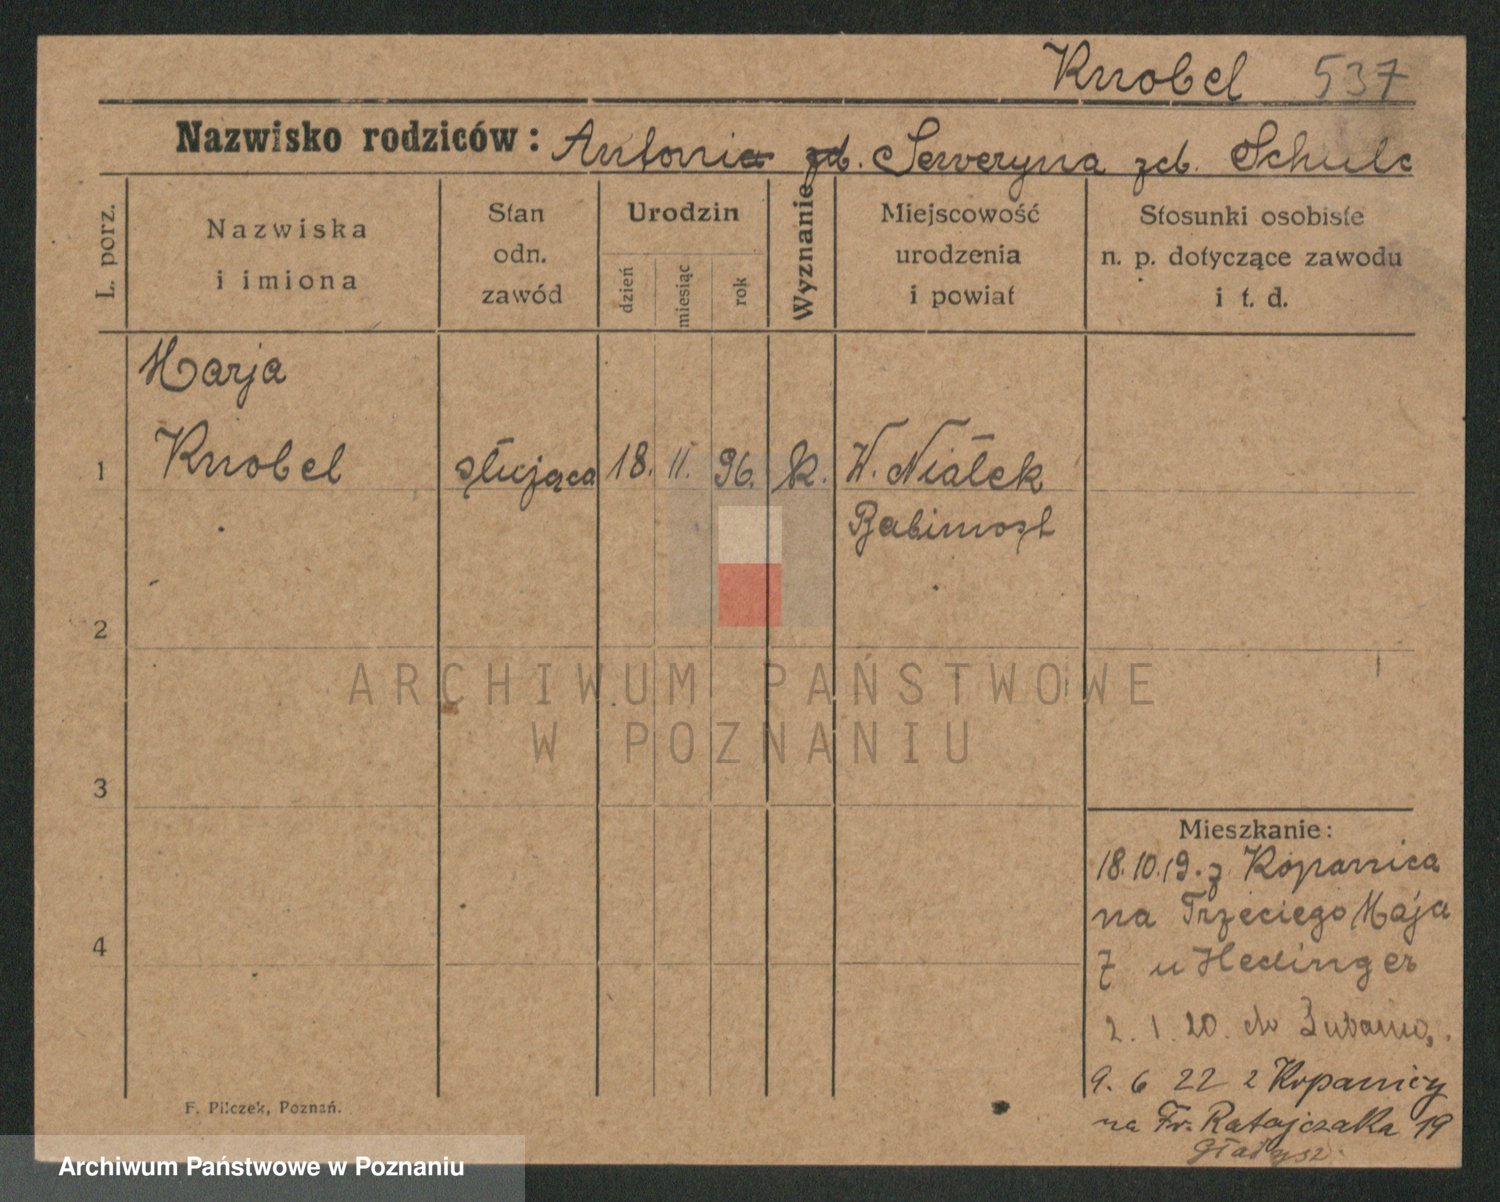 Knobel 537
Nazwisko rodziców: Antonia zd. Serweryna zd. Schulc
L. porz.
Nazwiska
i imiona
Stan
odn.
zawód
Urodzin
dzień
miesiąc
rok
Wyznanie
Miejscowość
urodzenia
i powiat
Stosunki osobiste
n. p. dotyczące zawodu
i t. d.
Marja
1 Knobel służąca 18. II. 96. k. W. Niałek
Babimost
2
3
4
ARCHIWUM PAŃSTWOWE
W POZNANIU
Mieszkanie:
18.10.19. z Kopanica
na Trzeciego Maja
7 u Hedinger
2. 1. 20. do
9. 6 22 z Kopanicy
na Fr. Ratajczaka 19
Gładysz
F. Pilczek, Poznań.
Archiwum Państwowe w Poznaniu